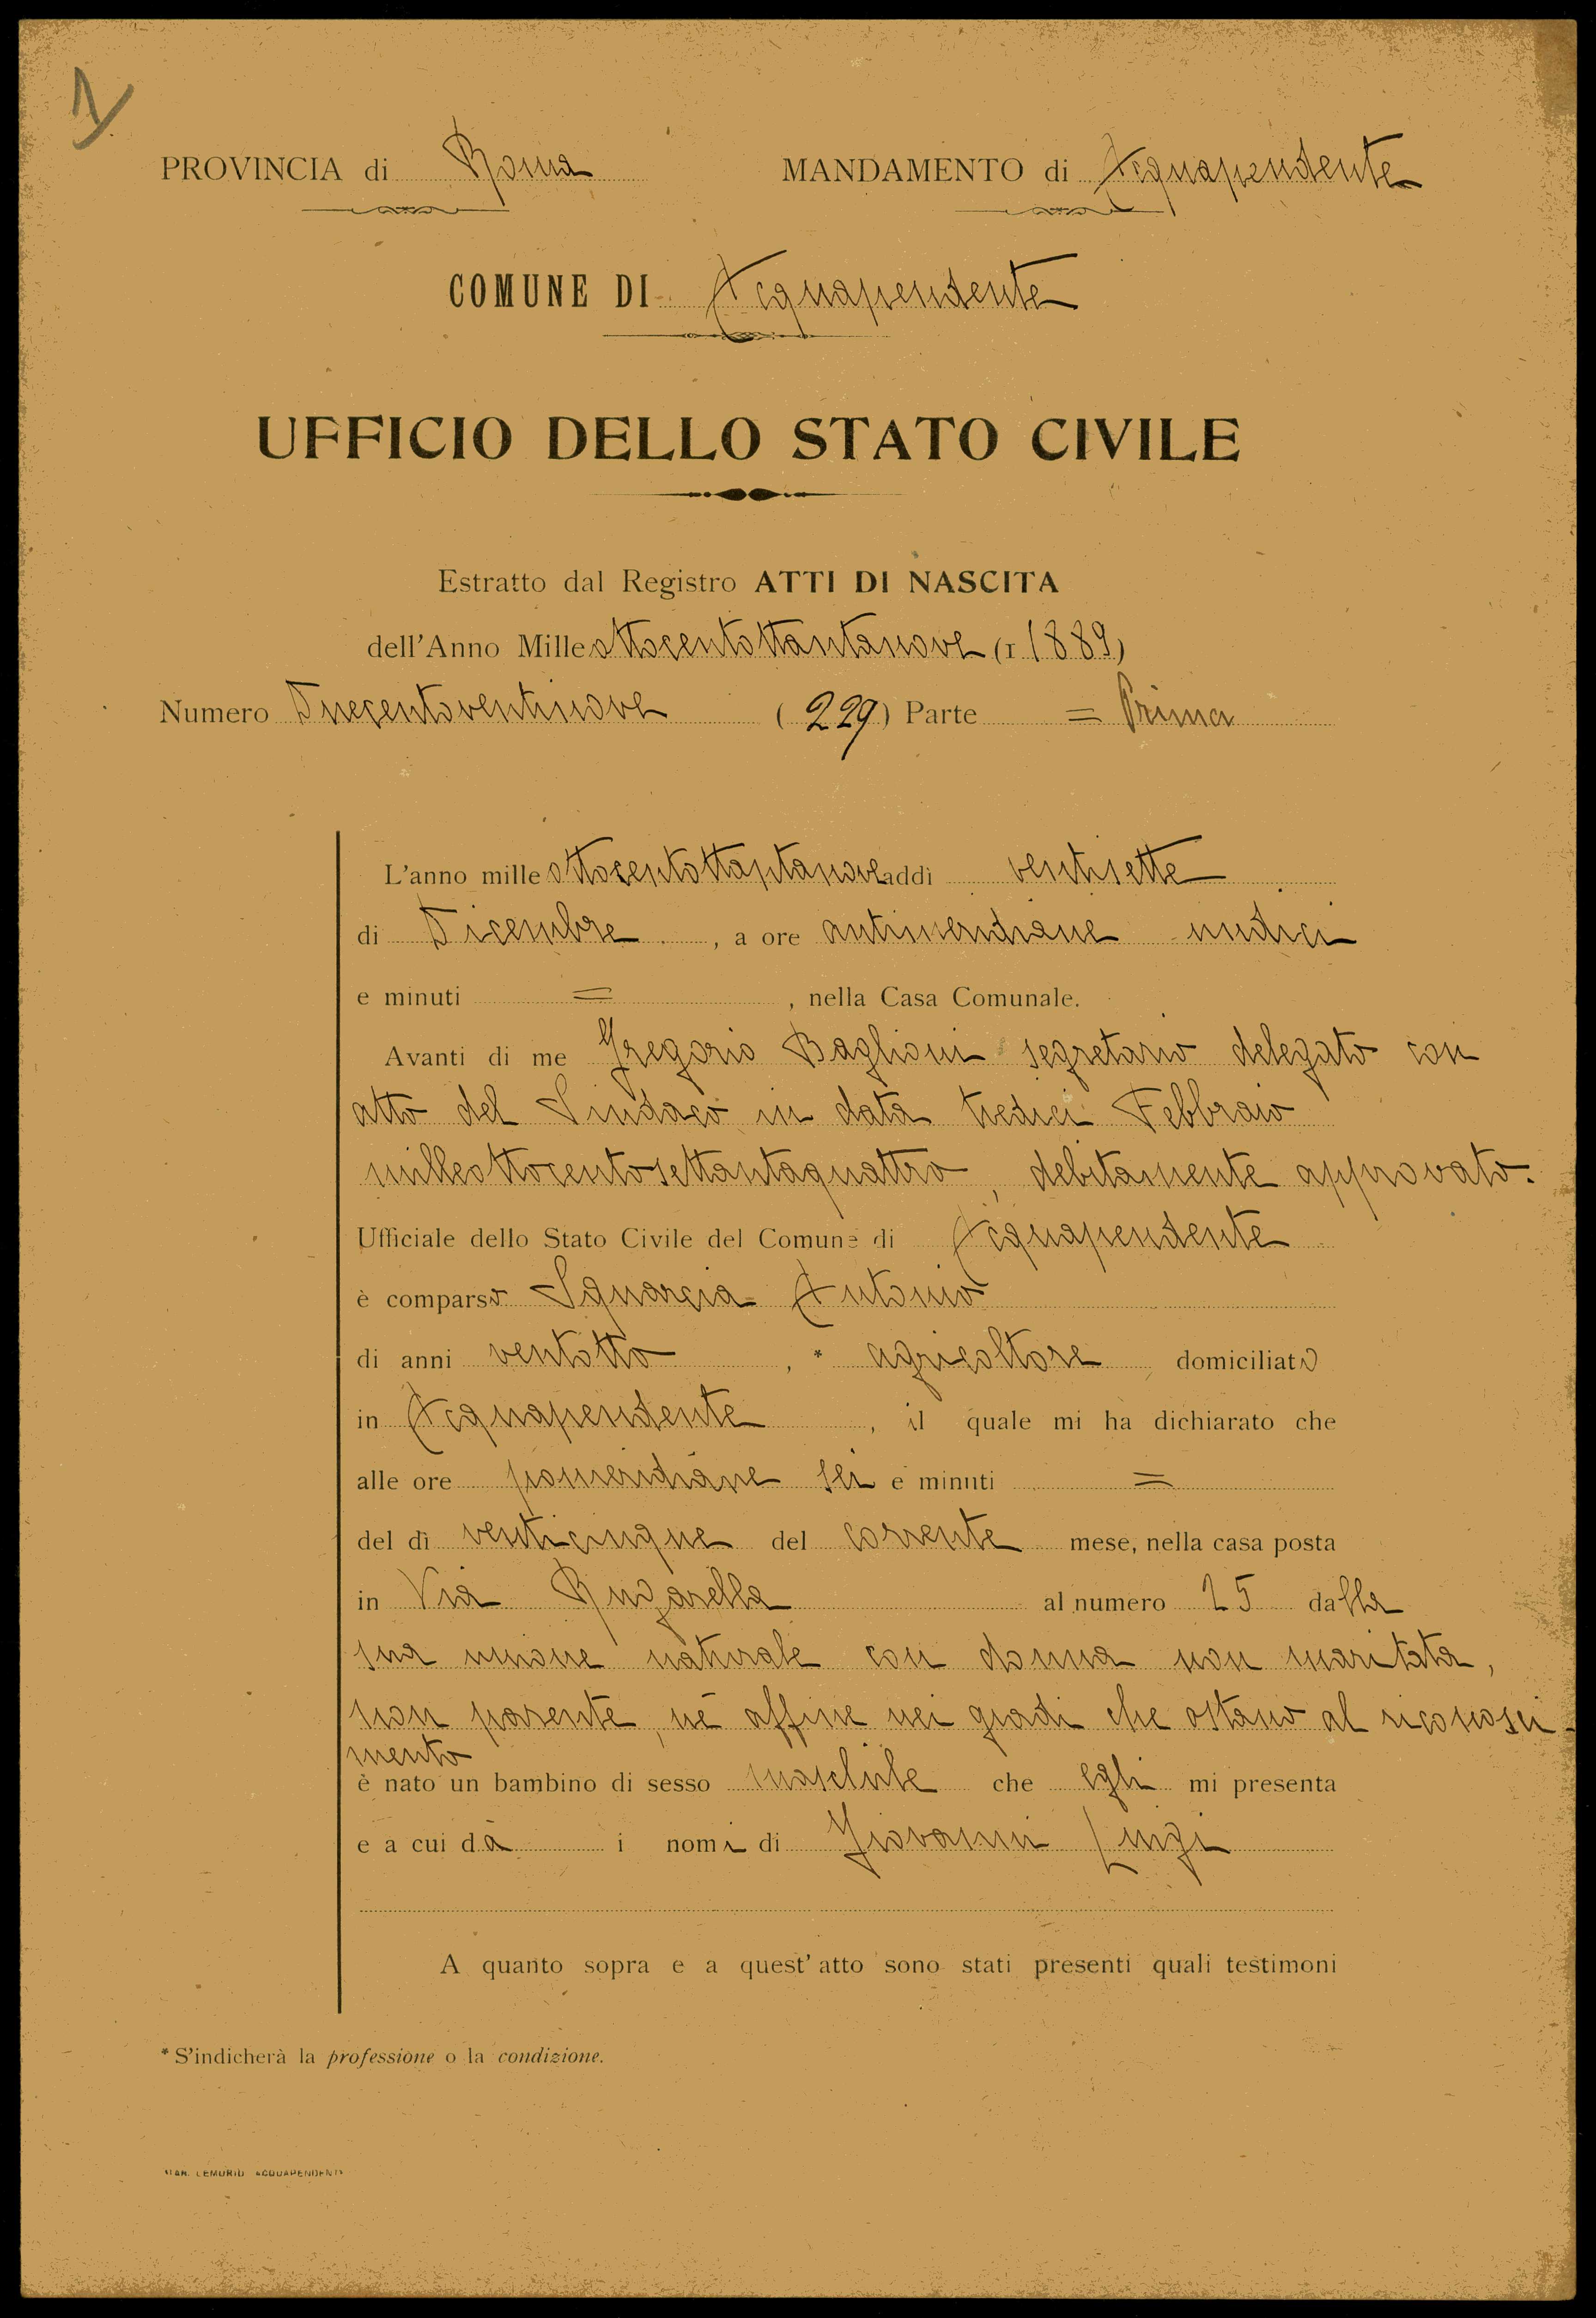 PROVINCIA di Roma MANDAMENTO di Acquapendente
COMUNE DI Acquapendente
UFFICIO DELLO STATO CIVILE
Estratto dal Registro ATTI DI NASCITA
dell'Anno Mille ottocentottantanove (1 1889)
Numero Duecentoventinove (229) Parte = Prima
L'anno mille ottocentottantanove addì ventisette
di Dicembre, a ore antimeridiane undici
e minuti =, nella Casa Comunale.
Avanti di me Gregorio Baglioni segretario delegato con
atto del Sindaco in data tredici Febbraio
milleottocentosettantaquattro, debitamente approvato.
Ufficiale dello Stato Civile del Comune di Acquapendente
è comparso Squarcia Antonio
di anni ventotto, * agricoltore domiciliato
in Acquapendente, il quale mi ha dichiarato che
alle ore pomeridiane sei e minuti =
del dì venticinque del corrente mese, nella casa posta
in Via Rugarella al numero 25 dalla
sua unione naturale con donna non maritata,
non parente, nè affine nei gradi che ostano al riconosci-
mento
è nato un bambino di sesso maschile che egli mi presenta
e a cui dà i nomi di Giovanni Luigi
A quanto sopra e a quest'atto sono stati presenti quali testimoni
* S'indicherà la professione o la condizione.
LEMURIO ACQUAPENDENTE